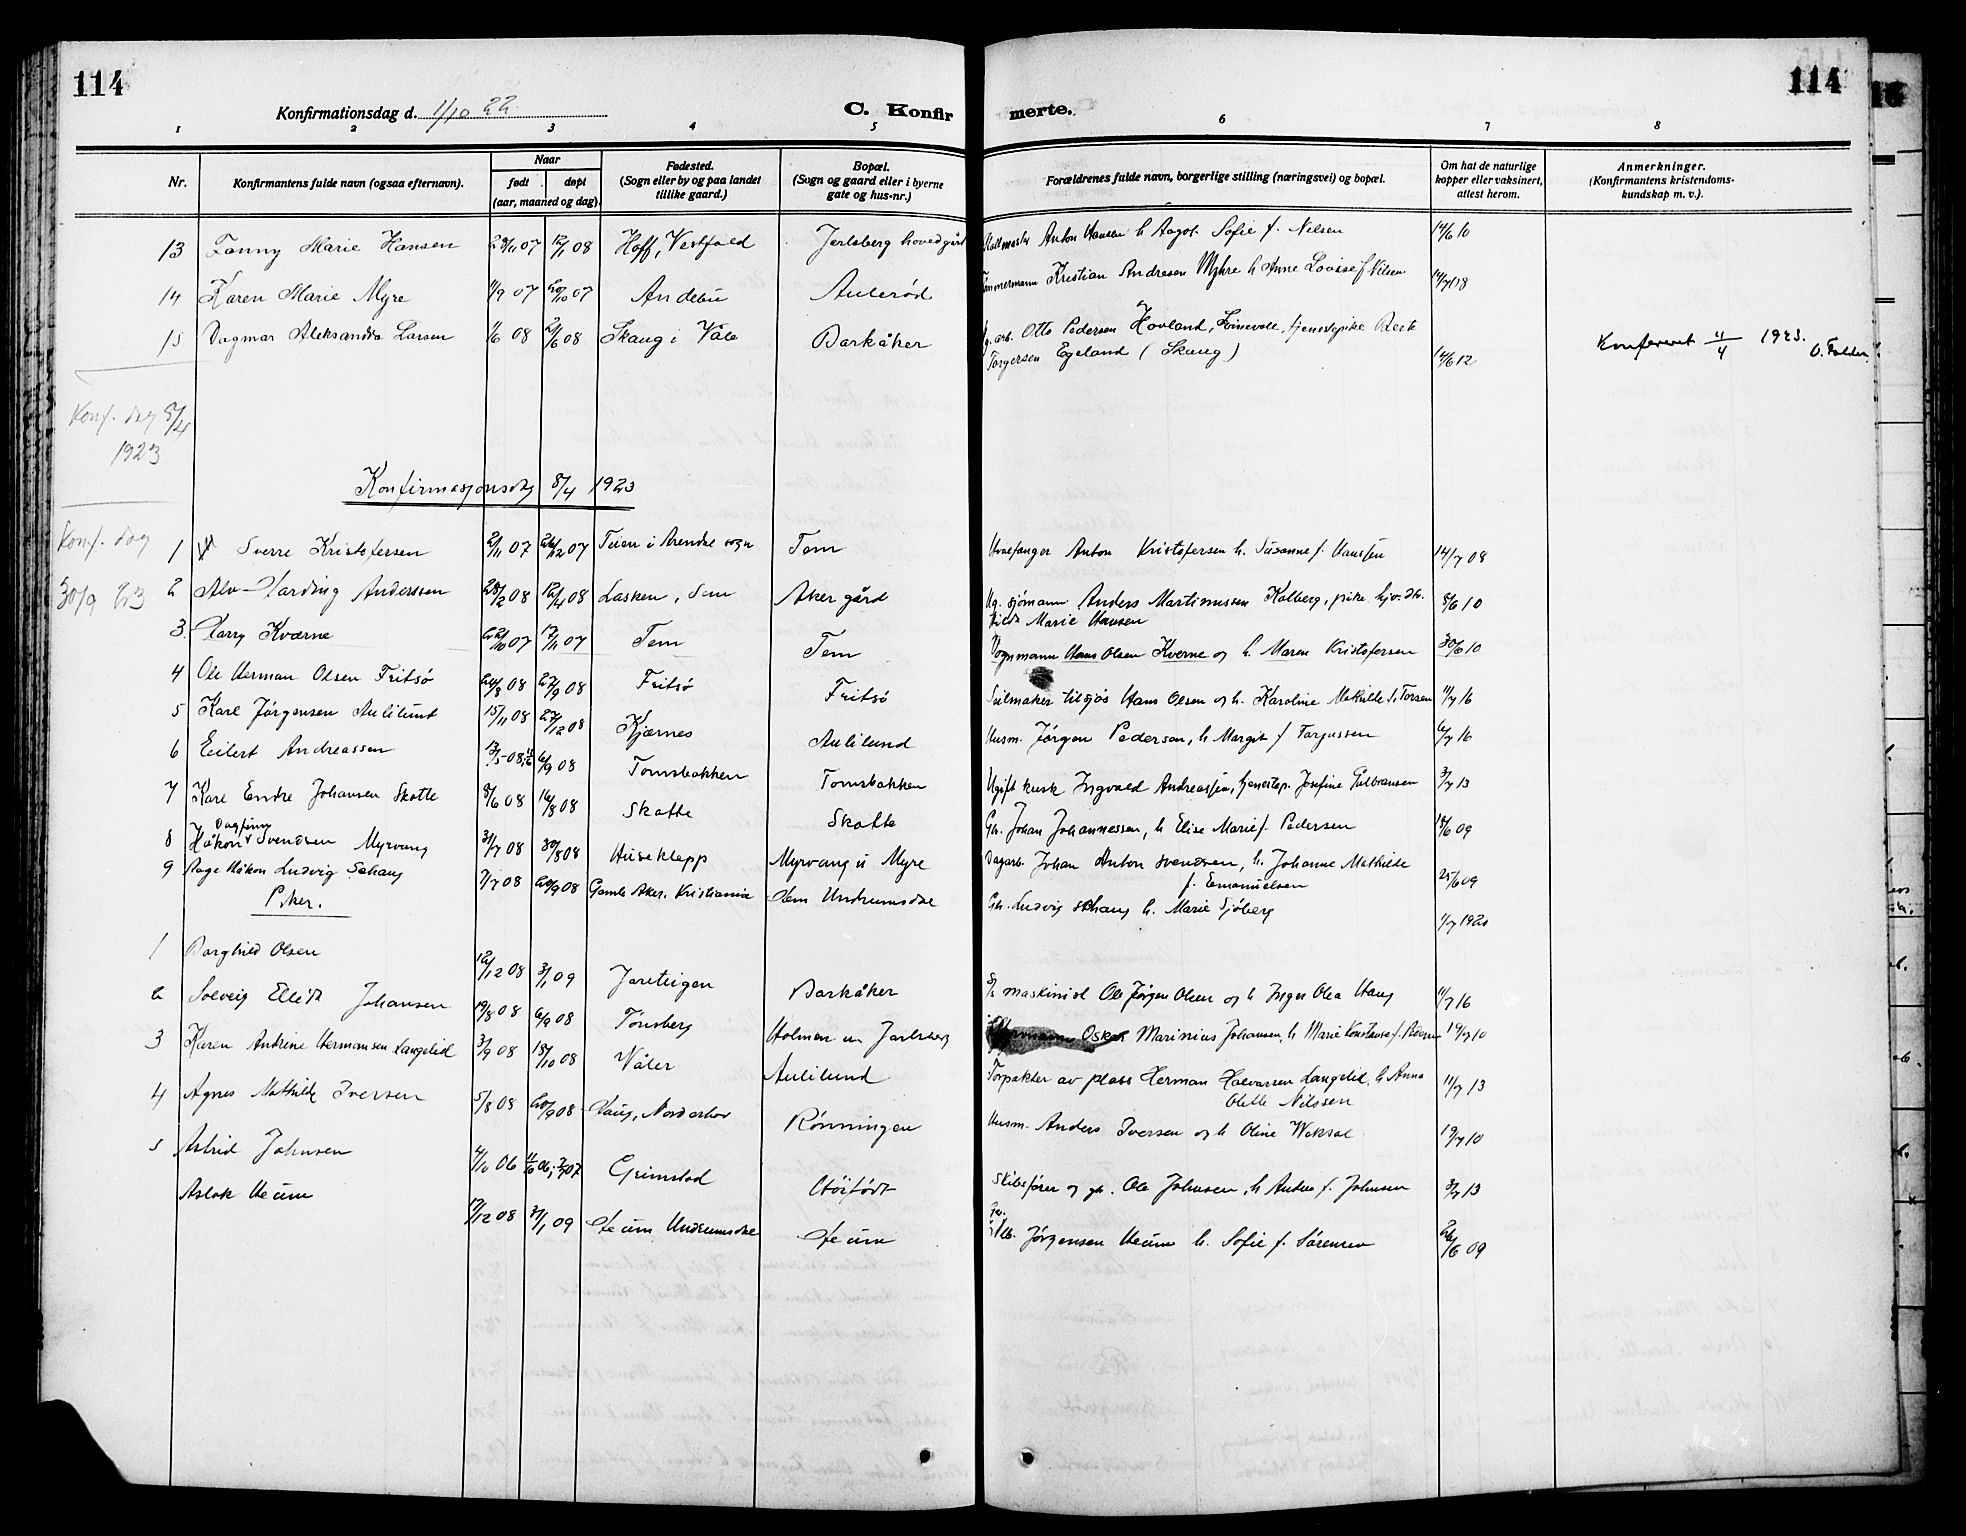 114
114
Konfirmationsdag d. 1/10 22
C. Konfir
merte.
1 2 3 4 5 6 7 8
Nr.
Konfirmantens fulde navn (ogsaa efternavn).
Naar
født
døpt
(aar, maaned og dag).
Fødested.
(Sogn eller by og paa landet
tillike gaard.)
Bopæl.
(Sogn og gaard eller i byerne
gate og hus-nr.)
Forældrenes fulde navn, borgerlige stilling (næringsvei) og bopæl.
Om hat de naturlige
kopper eller vaksinert,
attest herom.
Anmerkninger.
(Konfirmantens kristendoms-
kundskap m. v.).
13 Fanny Marie Hansen 07 12/1 08 Hoff, Vestfold Jarlsberg hovedgård Anton Hansen h Aagot Sofie f. Nilsen 14/6 10
14 Karen Marie Myre 11/9 07 20/10 07 Andebu Aulerød Tømmermann Kristian Andresen Myhre h Anne Lovise f. Nilsen
15 Dagmar Aleksandra Larsen 1/6 08 21/6 08 Skaug i Våle Barkåker Otto Pedersen Hovland, tjenestepike
Torgersen Egeland (Skaug) 14/6 12
Konferert 4/4 1923.
Konf. dag 8/4
1923
Konfirmasjonsdag 8/4 1923
Konf. dag
30/9 23
1 Sverre Kristofersen 2/11 07 26/12 07 Teien i Arendal sogn Tem Hvalfanger Anton Kristofersen h. Susanne f. Hanssen 14/7 08
2 Alv Harding Anderssen 28/2 08 12/4 08 Lasken, Sem Aker gård Ug. sjømann Anders Martinussen Kalberg, pike
Marie Hansen 8/6 10
3. Harry Kværne 22/10 07 17/11 07 Tem Tem Hans Olsen Kverne og h. Maren Kristofersen 30/6 10
4 Ole Herman Olsen Fritsø 24/8 08 27/9 08 Fritsø Fritsø Seilmaker tilsjøs Hans Olsen og h. Karoline Mathilde f. Torsen 11/7 16
5 Karl Jørgensen Aulilund 15/11 08 27/12 08 Kjærnes Aulilund Husm. Jørgen Pedersen, h Margit f Fargussen 6/7 16
6 Eilert Andreassen 13/5 08 6/9 08 Tomsbakken Tomsbakken Ugift kusk Ingvald Andreassen, tjenestep. Josefine Gulbransen 3/7 13
7 Karl Endre Johansen Skotte 8/6 08 16/8 08 Skotte Skotte Gh. Johan Johannessen, h Elise Marie f. Pedersen 18/6 09
8 Håkon Dagfinn Svendsen Myrvang 31/7 08 30/8 08 Huseklepp Myrvang u Myre Dagarb. Johan Anton Svendsen, h. Johanne Mathilde
f. Emanuelsen 25/6 09
9 Aage Håkon Ludvig Schang 7/7 08 20/9 08 Gamle Aker, Kristiania Sem Undrumsdal Gh. Ludvig Schang h. Marie Sjøberg 1/7 1920
Piker.
1 Borghild Olsen 12/12 08 3/1 09 Jareteigen Barkåker maskinist Ole Jørgen Olsen og h Inger Olea Haug 11/7 16
2 Solveig Ellida Johansen 19/8 08 6/9 08 Tønsberg Holmen u. Jarlsberg Oskar Marinius Johansen, h Marie Konstanse f. Pedersen 14/7 10
3 Karen Andrine Hermansen Langelid 3/9 08 18/10 08 Våler Aulilund Forpakter av plass Herman Halvorsen Langelid, h Anna
Olette Nilssen 11/7 13
4 Agnes Mathilde Iversen 5/8 08 20/9 08 Haug, Norderhov Rønningen Husm. Anders Iversen og h Oline Woksal 19/7 10
5 Astrid Johnsen 4/10 06 Grimstad Skibsfører og gh. Ole Johnsen, h Andrea f. Johnsen 3/7 13
Aslak Heum 17/12 08 31/1 09 Heum Undrumsdal Heum Jørgensen Heum h. Sofie f. Sørensen 26/6 09